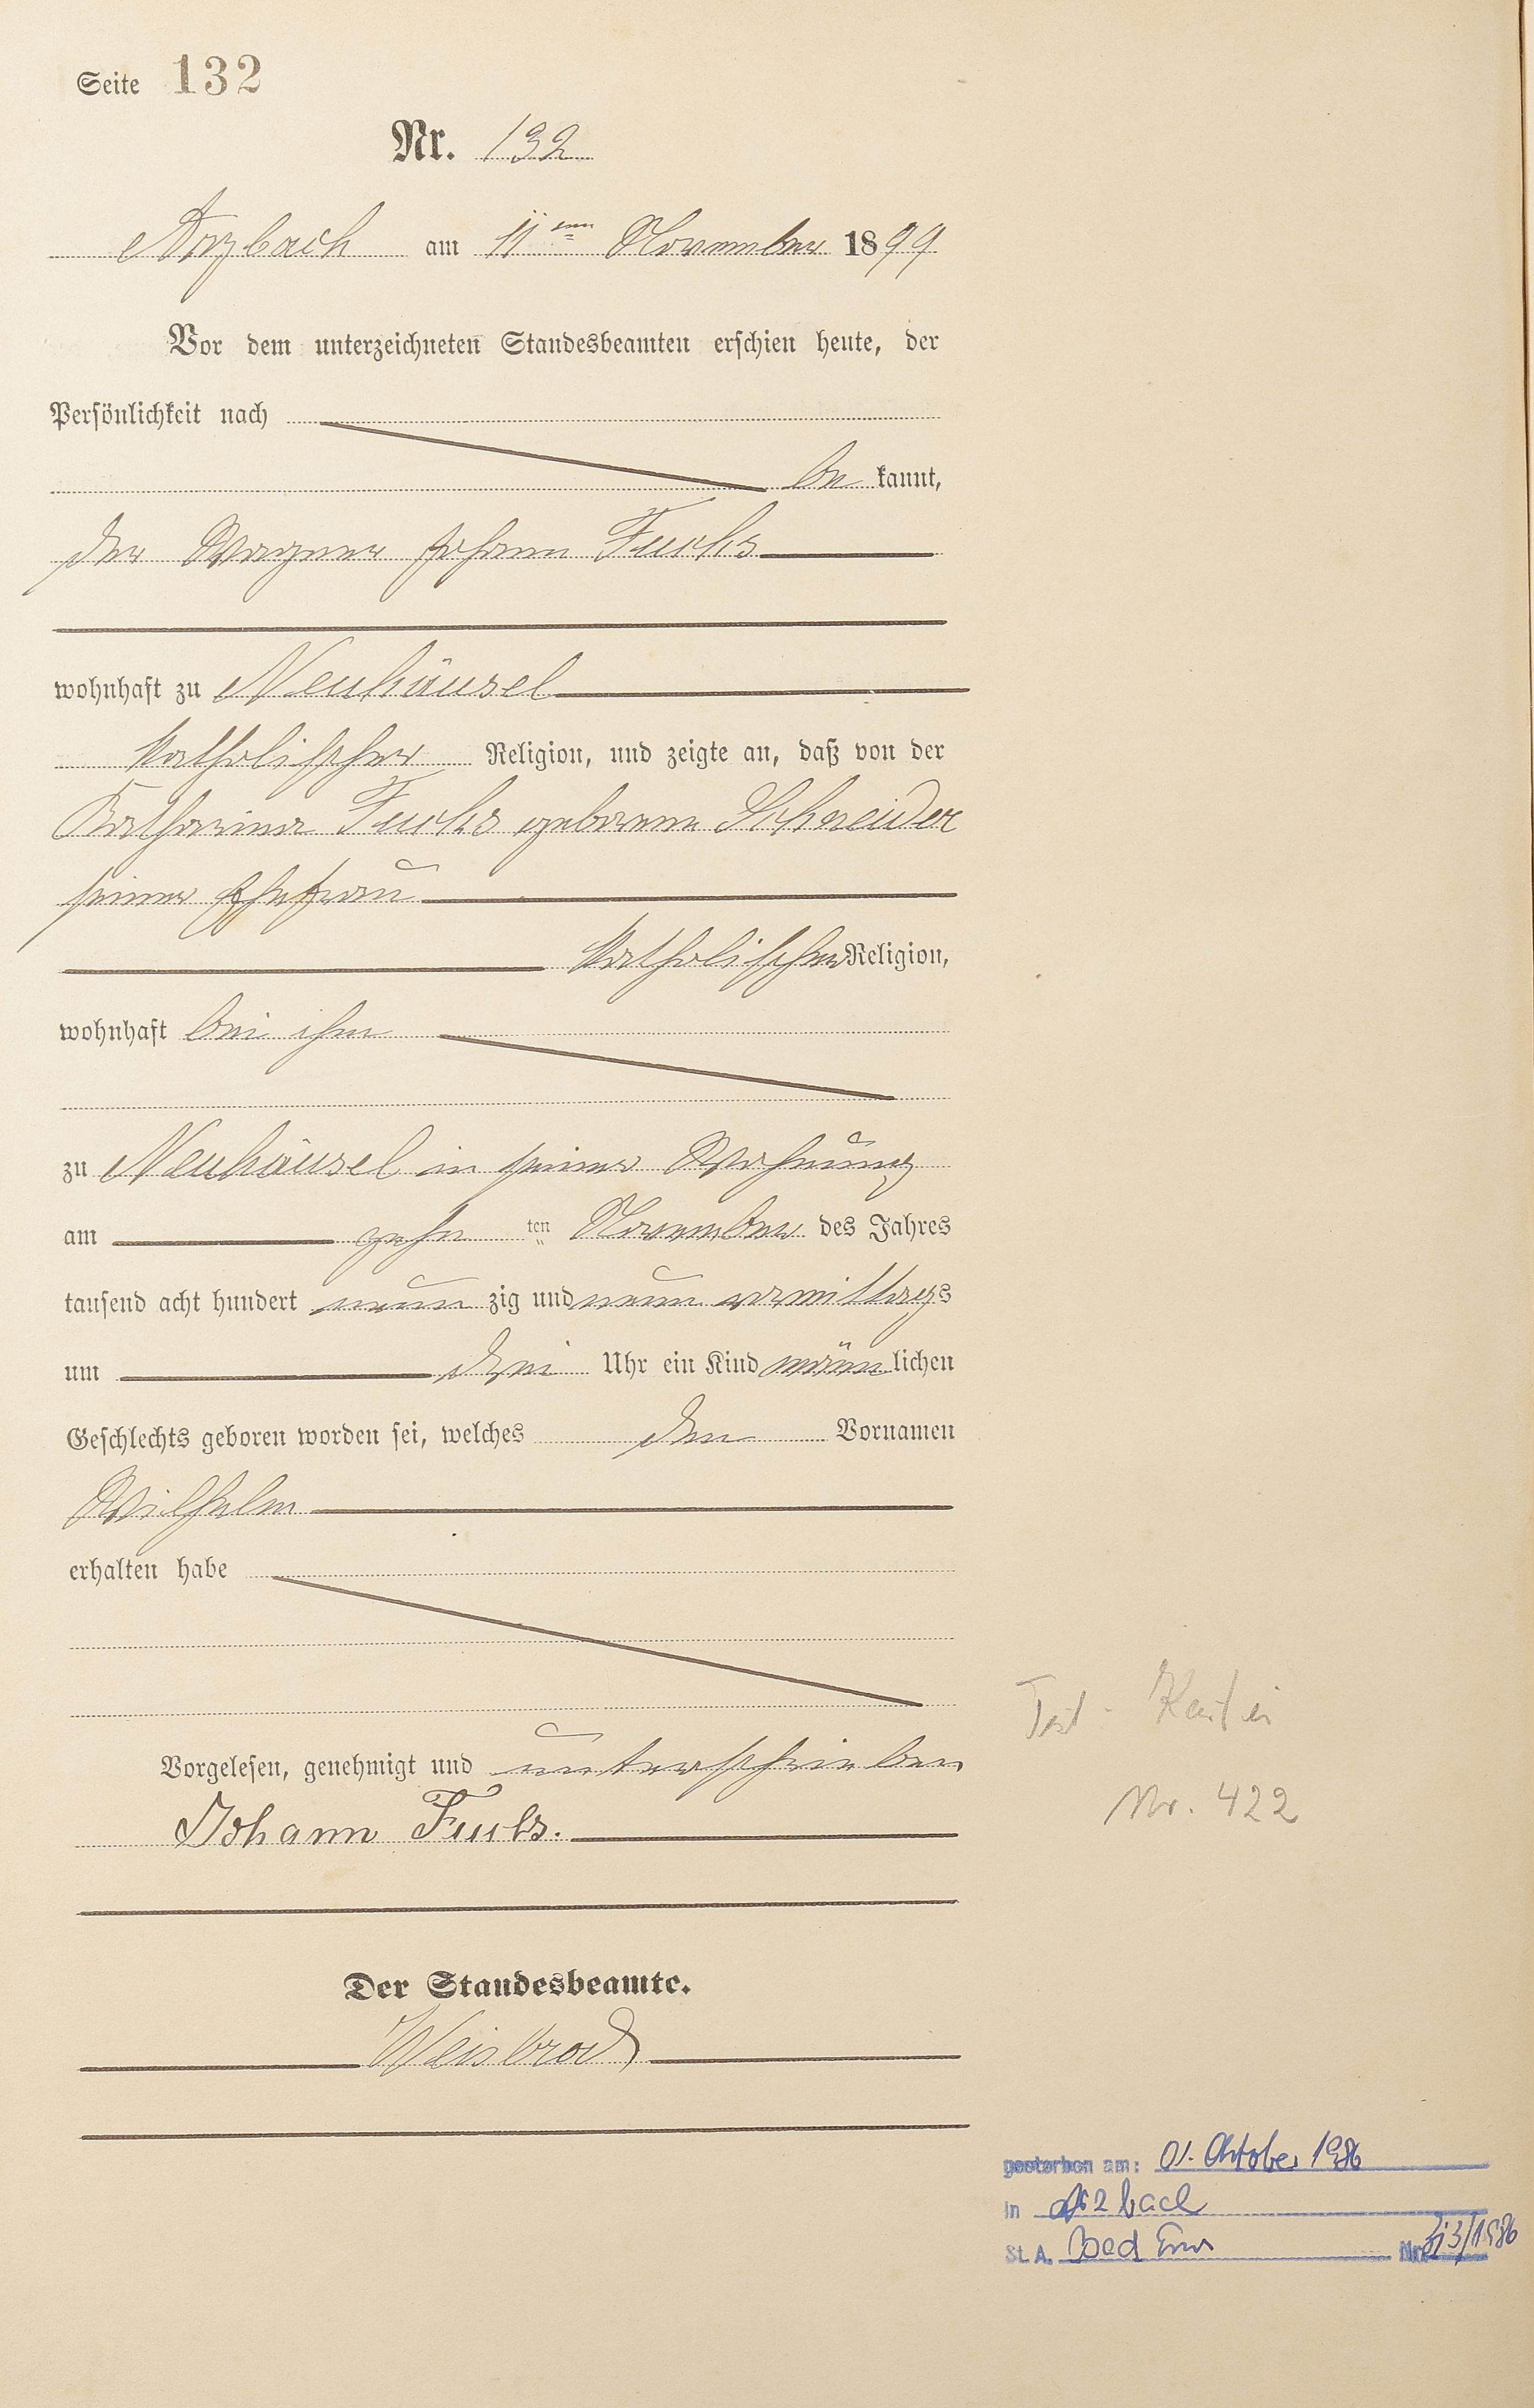 Seite 132
Nr. 132
Arzbach am 11ten November 1899
Vor dem unterzeichneten Standesbeamten erschien heute, der
Persönlichkeit nach
be kannt,
der Wagner Johann Fuchs
wohnhaft zu Neuhäusel
katholischer Religion, und zeigte an, daß von der
Katharina Fuchs geborene Schneider
seiner Ehefrau
katholischer Religion,
wohnhaft bei ihm
zu Neuhäusel in seiner Wohnung
am zehn ten November des Jahres
tausend acht hundert neun zig und neun vormittags
um drei Uhr ein Kind männlichen
Geschlechts geboren worden sei, welches den Vornamen
Wilhelm
erhalten habe
Vorgelesen, genehmigt und unterschrieben
Johann Fuchs.
Nr. 422
Der Standesbeamte.
Weisbrod
gestorben am: 01. Oktober 1986
in Arzbach
St. A. Bad Ems Nr.